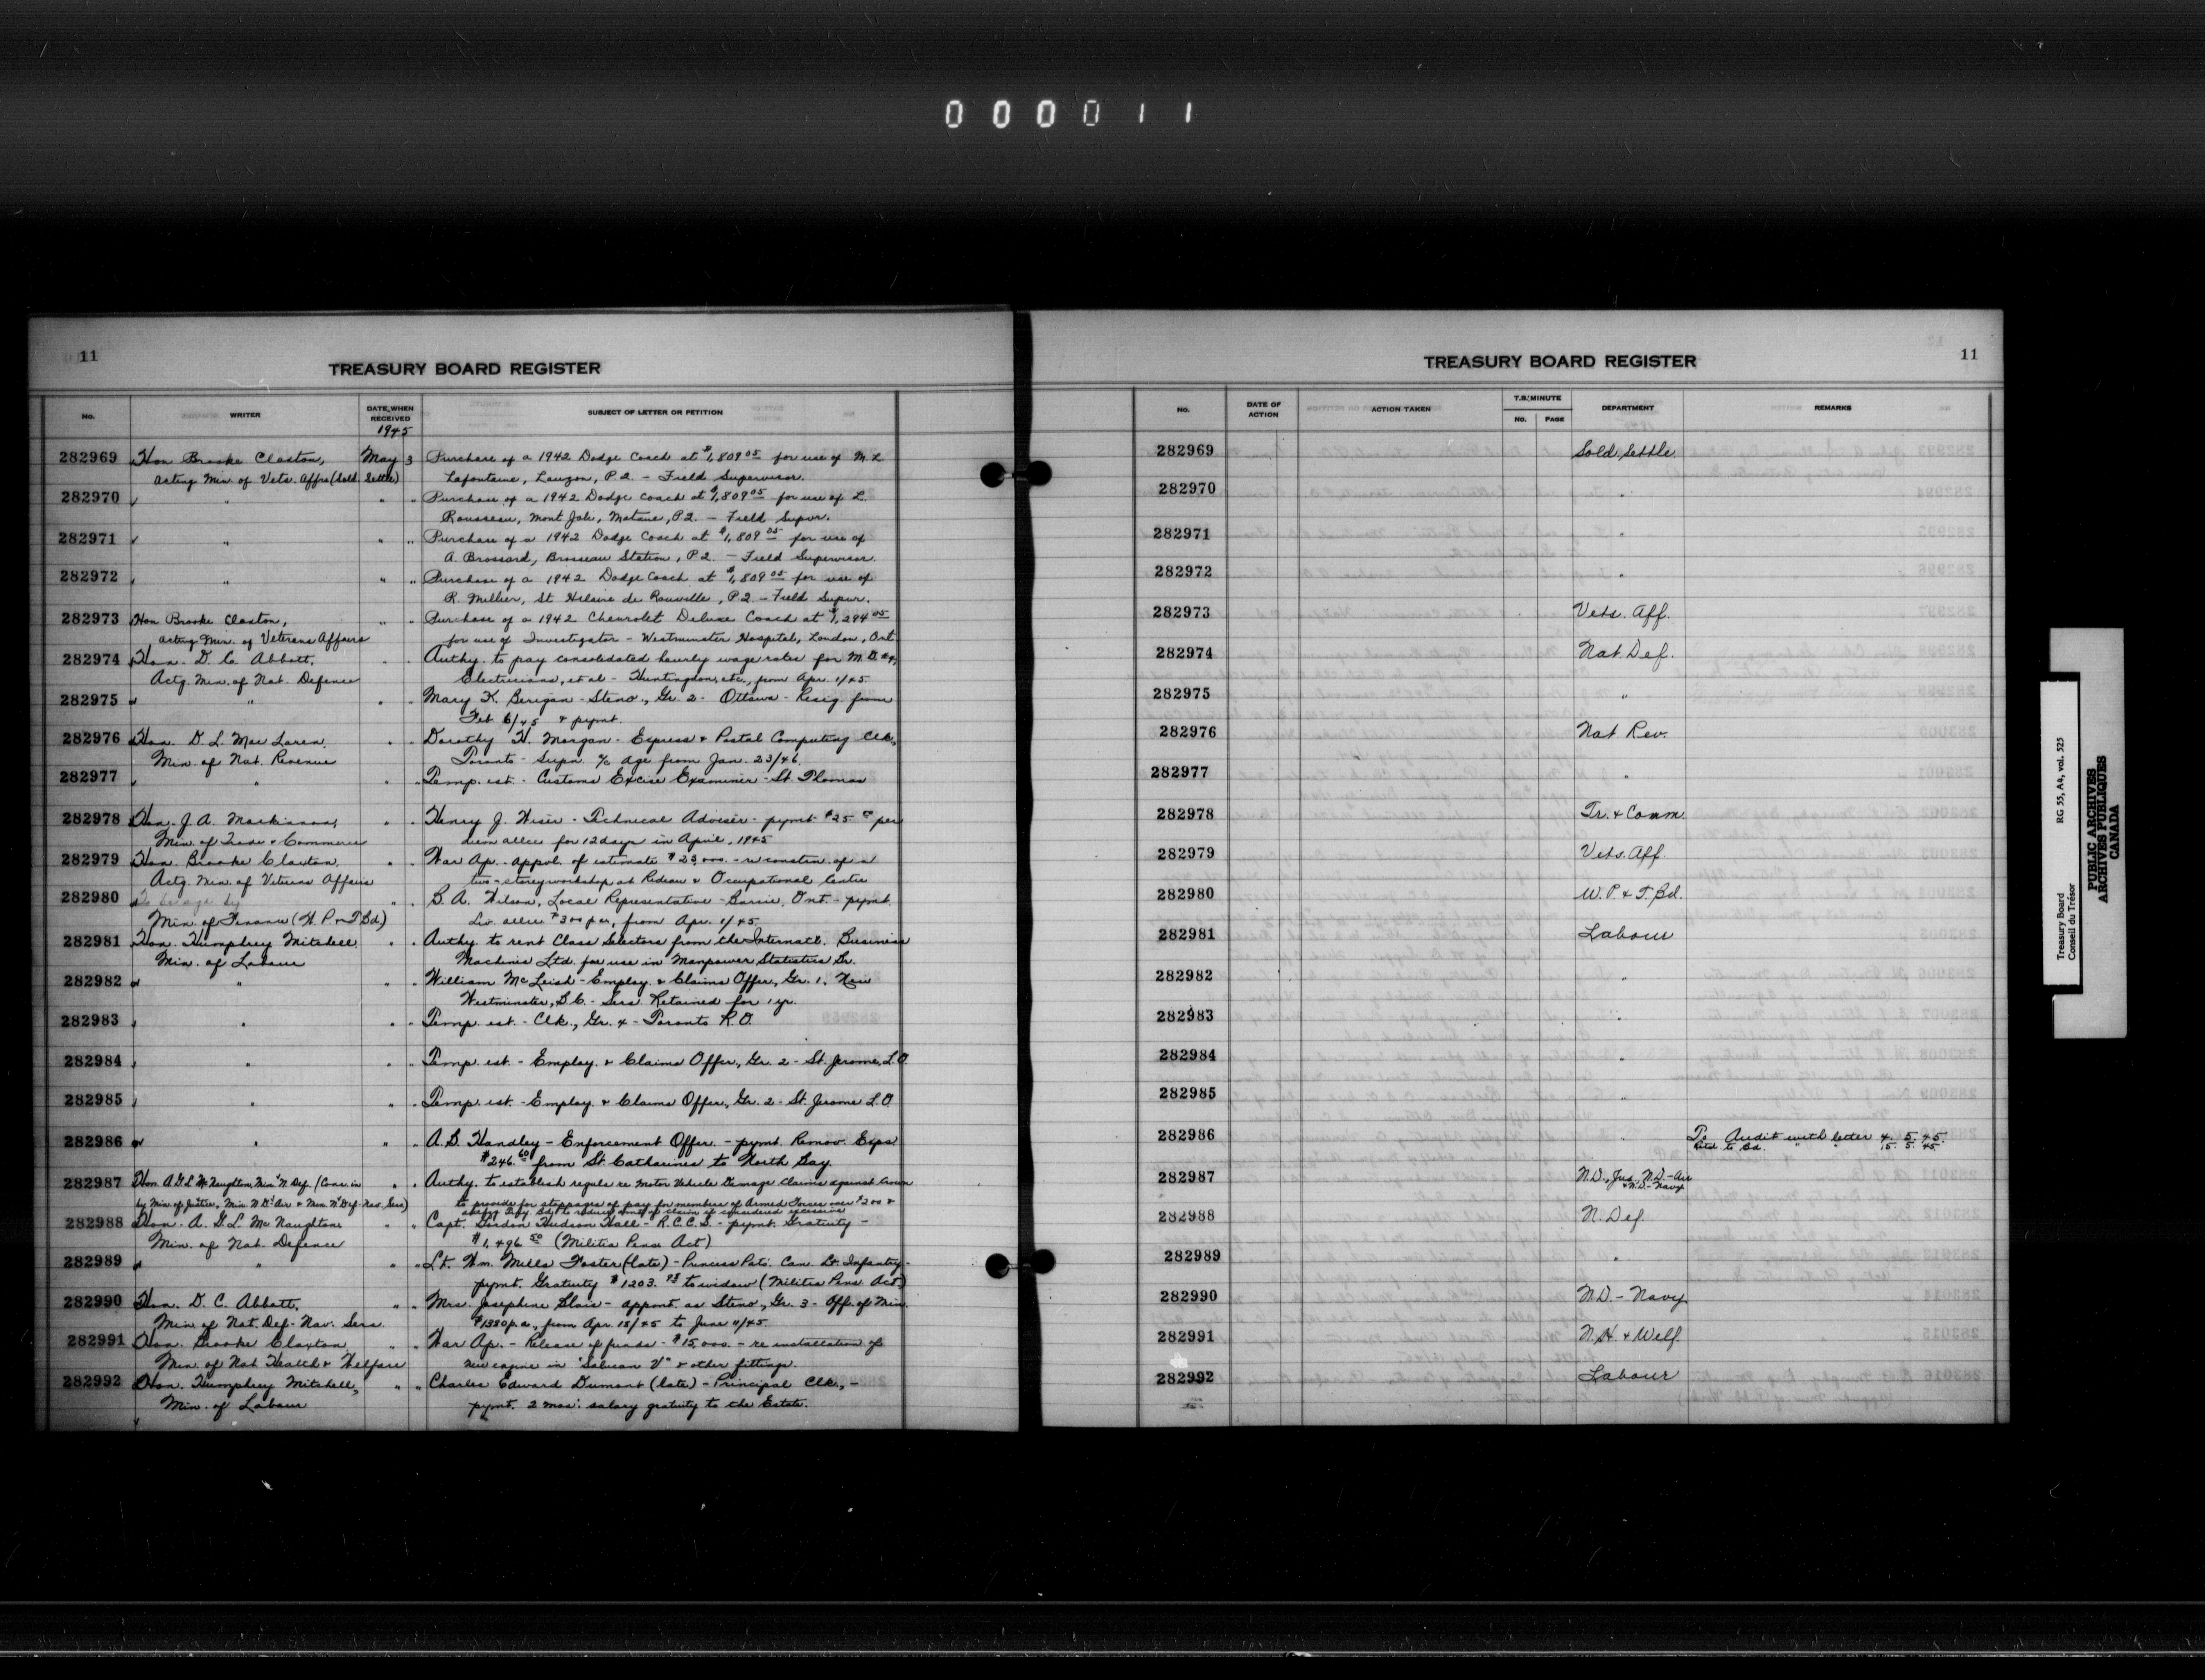 000011
11
TREASURY BOARD REGISTER
No. WRITER DATE WHEN RECEIVED SUBJECT OF LETTER OR PETITION
1945
282969 Hon Brooke Claxton, May 3 Purchase of a 1942 Dodge Coach at $1,809.05 for use of M. L.
Acting Min. of Vets. Affrs (Sold. Settle) Lafontaine, Lauzon, P.Q. - Field Supervisor.
282970 " " " Purchase of a 1942 Dodge coach at $1,809.05 for use of L.
Rousseau, Mont Joli, Matane, P.Q. - Field Supvr.
282971 " " " Purchase of a 1942 Dodge Coach at $1,809.05 for use of
A. Brossard, Brosseau Station, P.Q. - Field Supervisor
282972 " " " Purchase of a 1942 Dodge Coach at $1,809.05 for use of
R. Millier, St Hilaire de Rouville, P.Q. - Field Supvr.
282973 Hon Brooke Claxton, " " Purchase of a 1942 Chevrolet Deluxe Coach at $1,294.05
Acting Min. of Veterans Affairs for use of Investigator - Westminster Hospital, London, Ont.
282974 Hon. D. C. Abbott, " " Authy. to pay consolidated hourly wage rates for M.D. #4,
Actg. Min. of Nat. Defence Electricians, et al - Huntingdon, etc., from Apr. 1/45
282975 " " " Mary K. Berigan - Steno., Gr. 2 - Ottawa - Resig. from
Feb 6/45 & pymt.
282976 Hon. D. L. MacLaren, " " Dorothy H. Morgan - Express & Postal Computing Clk.,
Min. of Nat. Revenue Toronto - Supn. % age from Jan. 23/46.
282977 " " " Temp. est. - Customs Excise Examiner - St. Thomas
282978 Hon. J. A. MacKinnon, " " Henry J. Wiser - Technical Adviser - pymt $25 per
Min. of Trade & Commerce diem allce for 12 days in April, 1945
282979 Hon. Brooke Claxton, " " War Ap. - appvl. of estimate $23,000. - re constrn. of a
Actg. Min. of Veterans Affairs two-storey workshop at Rideau Occupational Centre
282980 " " B. A. Wilson, Local Representative - Barrie, Ont. - pymt.
Min. of Finance (W.P. & T. Bd.) Liv. allce $300 per, from Apr. 1/45
282981 Hon. Humphrey Mitchell " " Authy. to rent Class Selectors from the Internatl. Business
Min. of Labour Machines Ltd. for use in Manpower Statistics Br.
282982 " " " William McLeish - Employ. & Claims Offer, Gr. 1, New
Westminster, B.C. - Sers. Retained for 1 yr.
282983 " " " Temp. est. - Clk., Gr. 4 - Toronto R.O.
282984 " " " Temp. est. - Employ. & Claims Offer, Gr. 2 - St. Jerome, L.O.
282985 " " " Temp. est. - Employ. & Claims Offer, Gr. 2 - St. Jerome L.O.
282986 " " " A. B. Handley - Enforcement Offer. - pymt. Remov. Exps
$246.60 from St. Catharines to North Bay.
282987 Hon. A.G.L. McNaughton, Min. N. Def. (Conc. in " " Authy. to establish reguls re Motor Vehicle Damage claims against Crown
by Min. of Justice, Min. N.D. Air & Min. N. Def. Nav. Sers) to provide for stoppages of pay for members of Armed Forces over $200 &
282988 Hon. A. G. L. McNaughton, " " Capt. Gordon Hudson Hall - R.C.C.S. - pymt. Gratuity -
Min. of Nat. Defence $1,496.50 (Militia Pens. Act)
282989 " " " Lt. Wm. Mills Foster (late) - Princess Pats. Can. Lt. Infantry -
pymt. Gratuity $1203. to widow (Militia Pens. Act)
282990 Hon. D. C. Abbott, " " Mrs. Josephine Blair - appmt. as Steno., Gr. 3 - Off. of Min.
Min. of Nat. Def. - Nav. Sers. $1380 p.a., from Apr. 18/45 to June 11/45.
282991 Hon. Brooke Claxton " " War Ap. - Release of funds - $15,000. - re installation of
Min. of Nat. Health & Welfare new engine in "Salucan V" & other fittings.
282992 Hon. Humphrey Mitchell, " " Charles Edward Dumont (late) - Principal Clk., -
Min. of Labour pymt. 2 mos'. salary gratuity to the Estate.
TREASURY BOARD REGISTER
11
No. DATE OF ACTION ACTION TAKEN T.B. MINUTE No. PAGE DEPARTMENT REMARKS
282969 Sold. Settle
282970 "
282971 "
282972 "
282973 Vets. Aff.
282974 Nat. Def.
282975 "
282976 Nat Rev.
282977 "
282978 Tr. & Comm.
282979 Vets. Aff.
282980 W.P. & T. Bd.
282981 Labour
282982 "
282983 "
282984 "
282985 "
282986 " To Audit with letter 4. 5. 45.
Retd. to Bd. " " 15. 5. 45
282987 N.D., Jus., N.D.-Air
& N.D.-Navy
282988 N. Def.
282989 "
282990 N.D. - Navy
282991 N.H. & Welf.
282992 Labour
Treasury Board RG 55, A4, vol. 525
Conseil du Trésor
PUBLIC ARCHIVES
ARCHIVES PUBLIQUES
CANADA